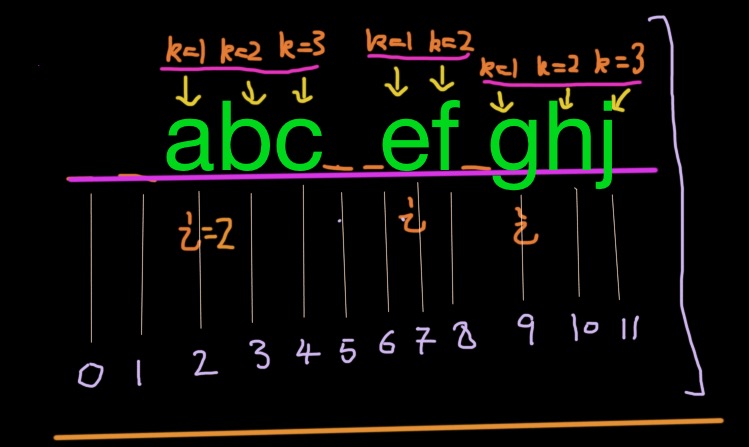 k=1 k=2 k=3 k=1 k=2 k=1 k=2 k=3
_ _ abc_ _ef_ghj
i=2 i i
0 1 2 3 4 5 6 7 8 9 10 11